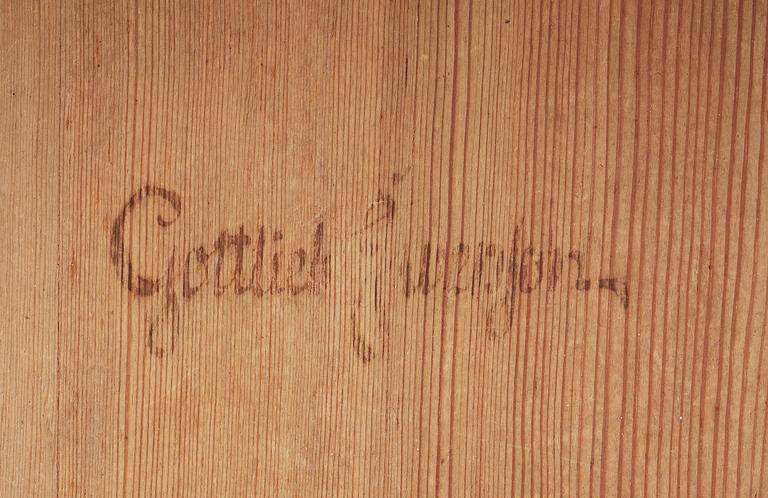 Gottlieb Iwersson